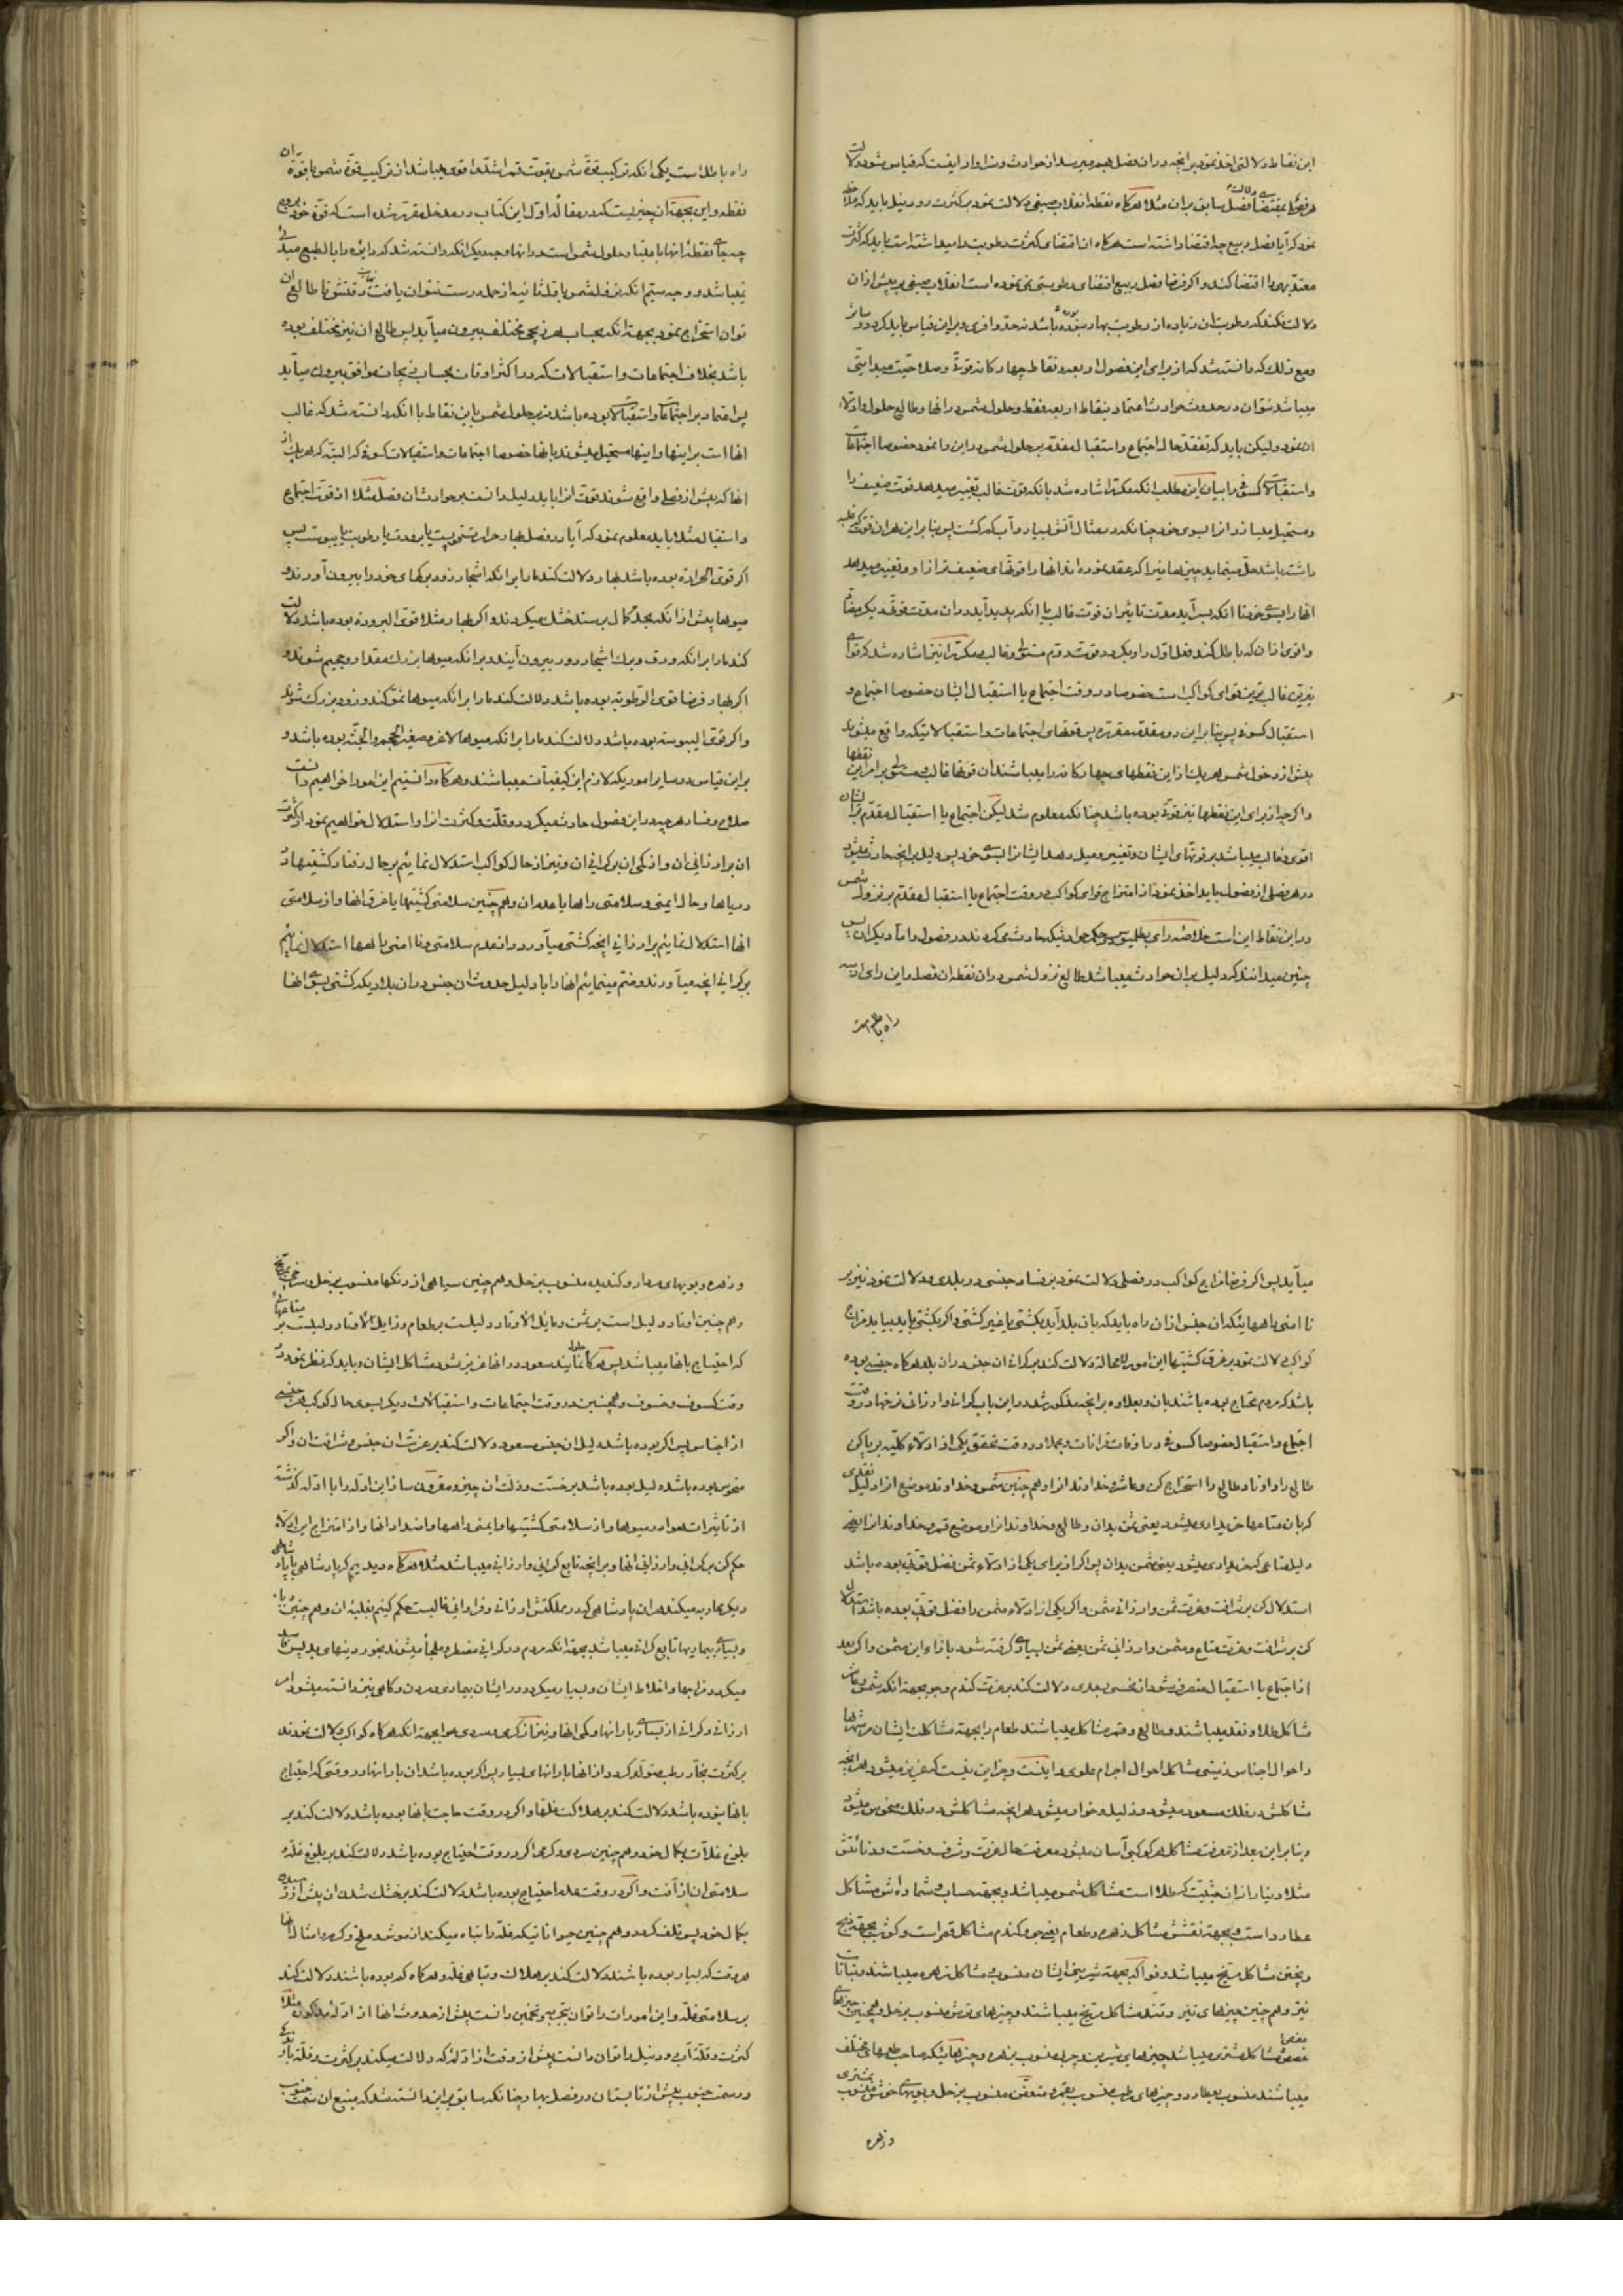 این نقاط دلالتی اخذ نمود بر انچه در ان فصل بهم میرسد از حوادث و سزاوار اینست که قیاس شود دلالت
هر فصلی بمقتضای دلالت فصل سابق بر ان مثلا هرگاه نقطه انقلاب صیفی دلالت نمود بر کثرت رود نیل باید که ملاحظه
نمود که آیا فصل ربیع چه اقتضا داشته است هرگاه ان اقتضای کثرت رطوبت را میداشته است باید که کثرت
معتد بهی را اقتضا کند و اگر فرضا فصل ربیع اقتضای رطوبتی نمی نموده است انقلاب صیفی بر بیش از ان
دلالت نکند که رطوبت ان زیاده از رطوبت بهار بوده باشد نه حد وافری و برین قیاس باید کرد در سایر
و مع ذلک که دانسته شد که از برای این فصول اربعه و نقاط چهارگانه قوة و صلاحیت مبدائیتی
میباشد نتوان در حدوث حوادث اعتماد بنقاط اربعه فقط و حلول شمس در انها و طالع حلول و ادلاء
ان نمود و لیکن باید که تفقد حال اجتماع و استقبال مقدم بر حلول شمس در این را نمود خصوصا اجتماعات
و استقبالات کسوفی را بیان این مطلب انکه مکررا اشاره شد بانکه قوت غالب تغییر میدهد قوت ضعیف را
و مستحیل میسازد انرا بسوی خود چنانکه در مثال آتش بسیار و آب کم گذشت پس بنا بر این هر ان قوتی که غلبه
داشته باشد حل مینماید چیزها نیز اکه عقد نموده اند انها را قوتهای ضعیف تر از او و تغییر میدهد
انها را بسوی خود تا انکه بسر آید مدت تاثیر ان قوت غالب یا انکه پدید آید در ان مدت قوة دیگر مقاوم
و اقوی از ان که باطل کند فعل اول را و بگردد قوت دوم مستولی و غالب و مکررا نیز اشاره شد که قوای
نیرین غالب ترین قوای کواکب است خصوصا در وقت اجتماع یا استقبال ایشان خصوصا اجتماع و
استقبال کسوفی پس بنا بر این دو مقدمه مقرره پس قوتهای اجتماعات و استقبالاتیکه واقع میشوند
پیش از دخول شمس هر یک از این نقطهای چهارگانه را میباشند ان قوتها غالب و مستولی بر امر این نقطها
و اگرچه از برای این نقطها نیز قوة بوده باشد چنانکه معلوم شد لیکن اجتماع یا استقبال مقدم بر ایشان
اقوی و غالب میباشد بر قوتهای ایشان و تغییر و میل دهد ایشانرا بسوی خود پس دلیل بر انچه حادث میشود
در هر فصلی از فصول باید اخذ نمود از امتزاج قوای کواکب در وقت اجتماع یا استقبال مقدم بر نزول شمس
در این نقاط این است خلاصه رای بطلمیوس در حکم حوادثیکه حادث میگردند در فصول و اما دیگران پس
چنین میدانند که دلیل بر ان حوادث میباشد طالع نزول شمس در ان نقطه ان فصل و این رای از سه
راه باطل است
راه باطل است یکی انکه ترکیب قوة شمس بقوت قمر اشد و اقوی میباشد از ترکیب قوة شمس با قوة ان
نقطه و این بجهة ان چیزیست که در مقاله اول این کتاب در مدخل مقرر شده است که قوة خود بروج
چه جای نقطه انها باعتبار حلول شمس است در انها و وجه دیگر انکه دانسته شد که دائره را بالطبع مبدئی
نمیباشد و وجه سیم انکه نزول شمس با ول ثانیه از حمل درست نتوان یافت نهایت دقتش تا طالع ان
توان استخراج نمود بجهة انکه بحساب هر زیجی مختلف بیرون میآید پس طالع ان نیز مختلف بوده
باشد بخلاف اجتماعات و استقبالات که در اکثر اوقات بحساب زیجات موافق بیرون میآید
پس اعتماد بر اجتماعات و استقبالات بوده باشد نه بر حلول شمس باین نقاط با انکه دانسته شد که غالب
انها است بر اینها و اینها مستحیل میشوند بانها خصوصا اجتماعات و استقبالات کسوفی که البته که هر یک از
انها که پیش از فصلی واقع شوند قوت انرا باید دلیل دانست بر حوادث ان فصل مثلا از قوت اجتماع
و استقبال مثلا باید معلوم نمود که آیا در فصل بهار حرارت مستولیست یا برودت یا رطوبت یا یبوست پس
اگر قوی الحرارة بوده باشد بهار دلالت کند مارا بر انکه اشجار زود برگهای خود را بیرون آورند و
میوها پیش از انکه بحد کمال برسند خشک میگردند و اگر بهار مثلا قوی البرودة بوده باشد دلالت
کند مارا بر انکه ورق و برگ اشجار دور بیرون آیند و بر انکه میوها بزرگ مقدار و جسیم شوند و
اگر بهار فرضا قوی الرطوبه بوده باشد دلالت کند مارا بر انکه میوها نمو کند و زود بزرگ شوند
و اگر قوی الیبوسة بوده باشد دلالت کند مارا بر انکه میوها لاغر و صغیر الحجم و الجثه بوده باشد و
بر این قیاس در سایر اموریکه لازم این کیفیات میباشند و هرگاه دانستیم این امور را خواهیم دانست
صلاح و فساد هر چه در این فصول حادث میگردد و قلت و کثرت انرا و استدلال خواهیم نمود از کثرت
ان بر ارزانی ان و از کمی ان بر گرانی ان و نیز از حال کواکب استدلال نمائیم بر حال رفتار کشتیها در
دریاها و حال ایمنی و سلامتی راهها یا عدم ان و هم چنین سلامتی کشتیها یا غرق انها و از سلامتی
انها استدلال نمائیم بر ارزانی انچه کشتی میآورد و از عدم سلامتی و نا امنی راهها استدلال نمائیم
بر گرانی انچه میآورند و ختم مینمائیم انها را با دلیل حدوث ان جنس در ان بلاد یکه کشتی بسوی انها
میآید پس اگر فرضا مزاج کواکب در فصلی دلالت نمود بر فساد جنسی در بلدی و دلالت نمود نیز بر
نا امنی راهها ئیکه ان جنس از ان راه باید که بان بلد آید بکشتی یا غیر کشتی و اگر بکشتی باید بیاید مزاج
کواکب دلالت نمود بر غرق کشتیها این امور لا محاله دلالت کند بر گرانی ان جنس در ان بلد هرگاه جنسی بوده
باشد که مردم محتاج بوده باشند بان و بعلاوه بر انچه مذکور شد در این باب گرانی و ارزانی نرخها در وقت
اجتماع و استقبال خصوصا کسوفی در اوقات قرانات و بجملة در وقت تحقق یکی از ادلاء کلیه بر پا کن
طالع را و اوتاد طالع را استخراج کن و عاشر و خداوند انرا و هم چنین شمس و خداوند موضع انرا دلیل نقدی
که بان متاعها خریداری میشود یعنی ثمن بدان و طالع و خداوند انرا و موضع قمر و خداوند انرا
دلیل متاعی که خریداری میشود یعنی مثمن بدان پس اگر از برای یکی از ادلاء ثمن فضل قوتی بوده باشد
استدلال کن بر شرافت و عزت ثمن و ارزانی مثمن و اگر یکی از ادلاء مثمن را فضل قوتی بوده باشد استدلال
کن بر شرافت و عزت متاع و مثمن و ارزانی ثمن یعنی ثمن بسیاری گرفته شود بازاء این مثمن و اگر بعد
از اجتماع یا استقبال منصرف شود از نحسی بسعدی دلالت کند بر عزت گندم و جو بجهة انکه شمس و عاشر
مشاکل طلا و نقد میباشند و طالع و قمر مشاکل میباشند طعام را بجهة مشاکلت ایشان مر تنها را
و احوال اجناس زمینی مشاکل احوال اجرام علوی را اینست و جز این نیست که عزیز میشود هر انچه
مشاکلش در فلک مسعود میشود و ذلیل و خوار میشود هر انچه مشاکلش در فلک منحوس میشود
و بنا بر این بعد از معرفت مشاکل هر کوکبی آسان میشود معرفت حال عزت و شرف و خست و دنائتش
مثلا دینار از ان حیثیت که طلا است مشاکل شمس میباشد و بجهة حساب و شماره اش مشاکل
عطارد است و بجهة نقشش مشاکل زهره و طعام یعنی جو و گندم مشاکل قمر است و گوشت بجهة ذبح
و پختن مشاکل مریخ میباشد و فواکه بجهة شیرینی ایشان منسوب و مشاکل زهره میباشند و نباتات
نیز و هم چنین چیزهای تیز و تند مشاکل مریخ میباشند و چیزهای ترش منسوب بزحل و همچنین چیزهای
عفص و مشاکل مشتری میباشد چیزهای شیرین و چرب منسوب بزهره و چیزهائیکه صاحب طعمهای مختلف
میباشند منسوب بعطارد و چیزهای رطب منسوب بقمر و متعفن منسوب بزحل و بویهای خوش منسوب بمشتری
و زهره
و زهره و بویهای مردار و گندیده منسوب بزحل و هم چنین سیاهی از رنگها منسوب بزحل و سرخی بمریخ
و هم چنین اوتاد دلیل است بر ثمن و مایل الاوتاد دلیلست بر طعام و زایل الاوتاد دلیلست بر متاعهائی
که احتیاج بانها میباشد پس هرگاه حلول نمایند سعود در انها عزیز شود مشاکل ایشان و باید که نظر نمود در
وقت کسوف و خسوف و همچنین در وقت اجتماعات و استقبالات دیگر بسوی حال کوکب هر جنسی
از اجناس پس اگر بوده باشد دلیل ان جنس مسعود دلالت کند بر عزت ان جنس و شرافت ان و اگر
منحوس بوده باشد دلیل بوده باشد بر خست و ذلت ان چیز و مقرون ساز این ادله را با ادله گذشته
از تاثیرات هوا در میوها و از سلامتی کشتیها و ایمنی راهها و اضداد انها و از امتزاج این ادلاء
حکم کن بر گرانی و ارزانی انها و بر انچه تابع گرانی و ارزانی میباشد مثلا هرگاه دیدیم که پادشاهی با پادشاهی
دیگر محاربه میکند هر ان پادشاهی که در مملکتش ارزانی و فراوانی غالبست حکم کنیم بغلبه ان و هم چنین وبا
و بسیاری بیماریها تابع گرانی میباشد بجهة انکه مردم در گرانی مضطر و ملجأ میشوند بخوردنیهای بد پس فاسد
میگردد مزاجها و اخلاط ایشان و بسیار میگردد در ایشان بیماری و مردن و گاهی نیز دانسته میشود امر
ارزانی و گرانی از بسیاری بارانها و کمی انها و نیز از گرمی و سردی هوا بجهة انکه هرگاه کواکب دلالت نمودند
بر کثرت بخار رطب متولد گردد از انها بارانهای بسیار پس اگر بوده باشد ان بارانها در وقتی که احتیاج
بانها نبوده باشد دلالت کند بر هلاکت غلها و اگر در وقت حاجت بانها بوده باشد دلالت کند بر
بلوغ غلات بکمال خود و هم چنین سردی و گرمی اگر در وقت احتیاج بوده باشد دلالت کند بر بلوغ غله و
سلامتی ان از آفت و اگر در وقت عدم احتیاج بوده باشد دلالت کند بر خشک شدن ان پیش از رسیدن
بکمال خود پس تلف گردد و هم چنین حیواناتیکه غله را تباه میکنند از موش و ملخ و کرم و امثال انها
هر وقت که بسیار بوده باشند دلالت کند بر هلاک و تباهی غله و هرگاه کم بوده باشند دلالت کند
بر سلامتی غله و این امورات را توان بتجربه و تخمین دانست پیش از حدوث انها از ادله مذکوره مثلا
کثرت و قلت آب رود نیل را توان دانست پیش از وقت از ادله که دلالت میکند بر کثرت و قلت باران
در سمت جنوب پیش از تابستان در فصل بهار چنانکه سابق بر این دانسته شد که منبع ان سمت جنوب